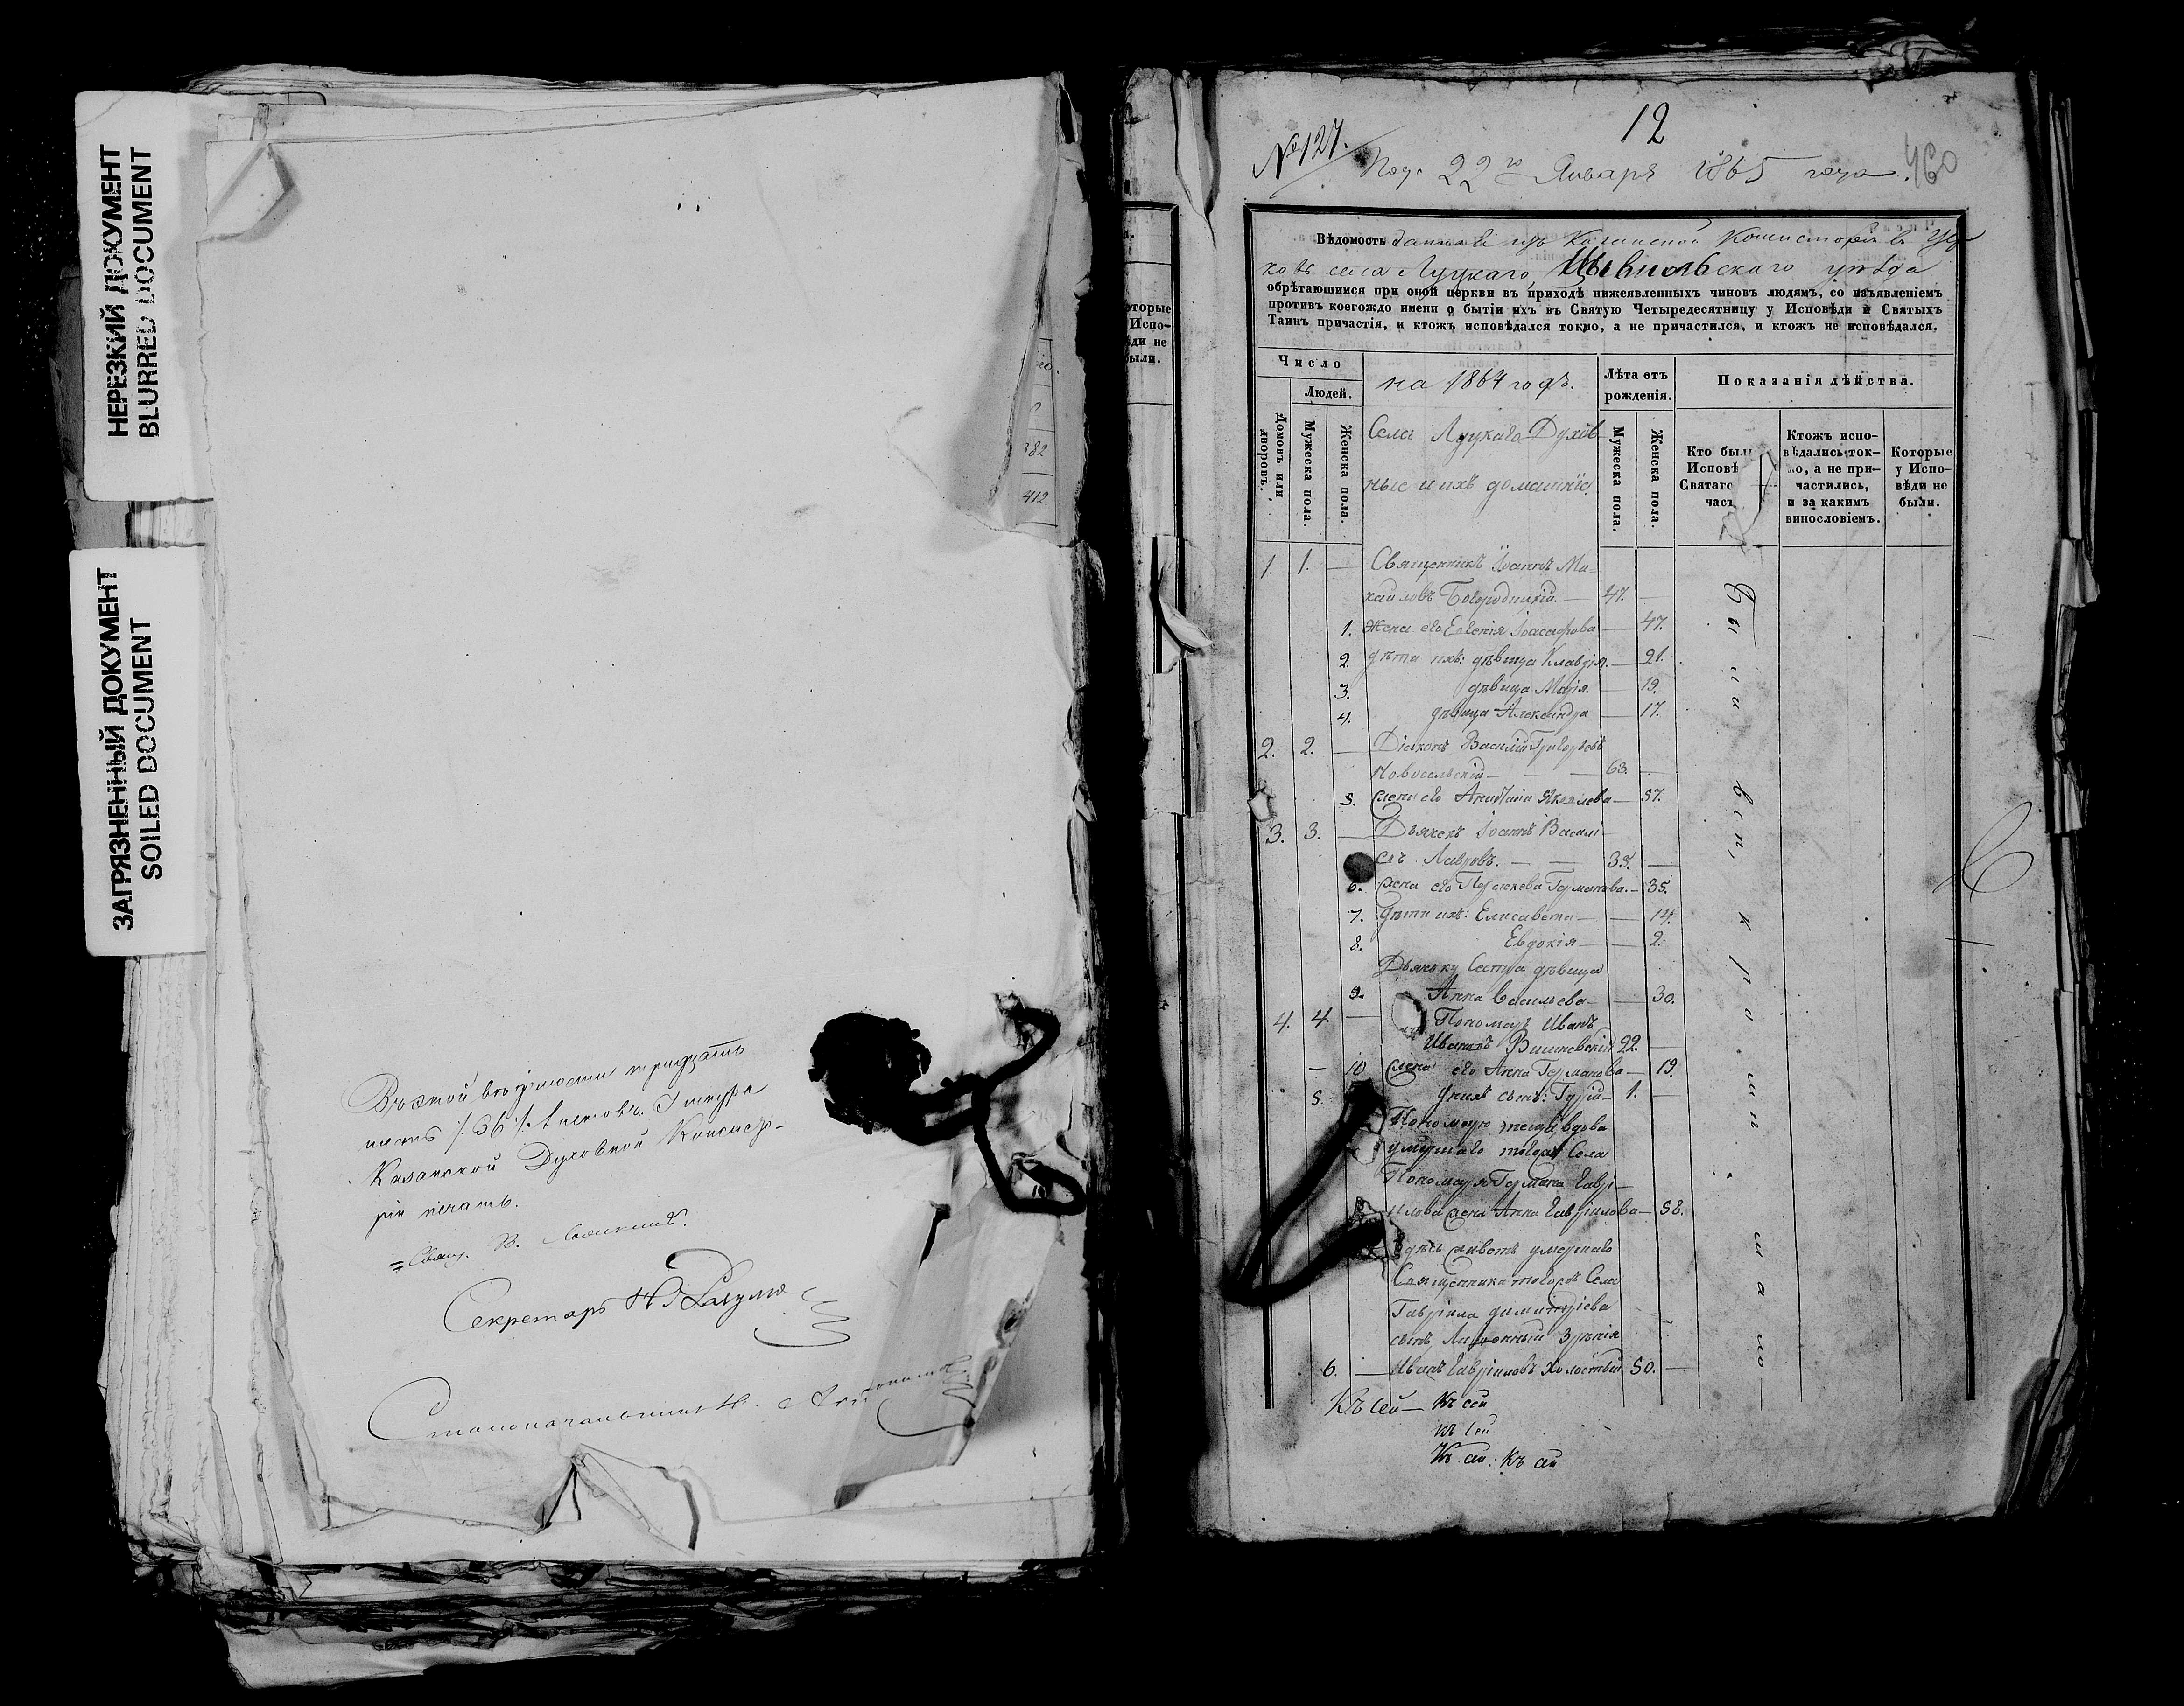 НЕРЕЗКИЙ ДОКУМЕНТ
BLURRED DOCUMENT
ЗАГРЯЗНЕННЫЙ ДОКУМЕНТ
SOILED DOCUMENT
382
412
Въ этой вѣдомости тридцать
шесть /:36:/ листовъ. Шнура
Казанской Духовной Консисто-
ріи печать.
Свящ. В.
Секретарь
Столоначальникъ
которые
Испо-
вѣди не
были.
12
№ 127. Под. 22го Января 1865 года. 460
Вѣдомость данная изъ Казанской Консисторіи въ Цер
ковь села Луцкаго, Цывильскаго уѣзда
обрѣтающимся при оной церкви въ приходѣ нижеявленныхъ чиновъ людямъ, со изъявленіемъ
противъ коегождо имени о бытіи ихъ въ Святую Четыредесятницу у Исповѣди и Святыхъ
Таинъ причастія, и ктожъ исповѣдался токмо, а не причастился, и ктожъ не исповѣдался.
Число
Людей.
Домовъ или дворовъ.
Мужеска пола.
Женска пола.
на 1864 годъ.
Села Луцкаго Духов
ные и ихъ домашніе.
Лѣта отъ
рожденія.
Мужеска пола.
Женска пола.
Показанія дѣйства.
Кто был
Исповѣ
Святаго
час
Ктожъ испо-
вѣдались ток-
мо, а не при-
частились,
и за какимъ
винословіемъ.
Которые
у Испо-
вѣди не
были.
1. 1. — Священникъ Іоаннъ Ми-
хайловъ Богородицкій. — 47. —
1. Жена его Евгенія Іоасафова — 47.
2. дѣти ихъ: дѣвица Клавдія. — 21.
3. дѣвица Марія. — 19.
4. дѣвица Александра — 17.
2. 2. — Діаконъ Василій Григорьевъ
Новосельскій — — — 63. —
5. Жена его Анастасія Яковлева — 57.
3. 3. — Дьячекъ Іоаннъ Василі
евъ Лавровъ. — — 35. —
6. Жена его Параскева Германова. — 35.
7. Дѣти ихъ: Елисавета — — 14.
8. Евдокія — — 2.
Дьячку Сестра дѣвица
9. Анна Васильева — — 30.
4. 4. — Пономарь Иванъ
Ивановъ Вишневскій 22. —
— 10 Жена его Анна Германова — 19.
5. у нихъ сынъ: Гурій — 1. —
Пономарю теща, вдова
умершаго тогожъ Села
Пономаря Германа Гаврі-
илова жена Анна Гавріилова — 58.
Здѣсь живетъ умершаго
Священника тогожъ Села
Гавріила Димитріева
сынъ, Лишенный Зрѣнія
6. — Иванъ Гавріиловъ Холостый 50. —
Были вси, кромѣ мало—
Къ сей — Къ сей
къ сей
Къ сей: Къ сей